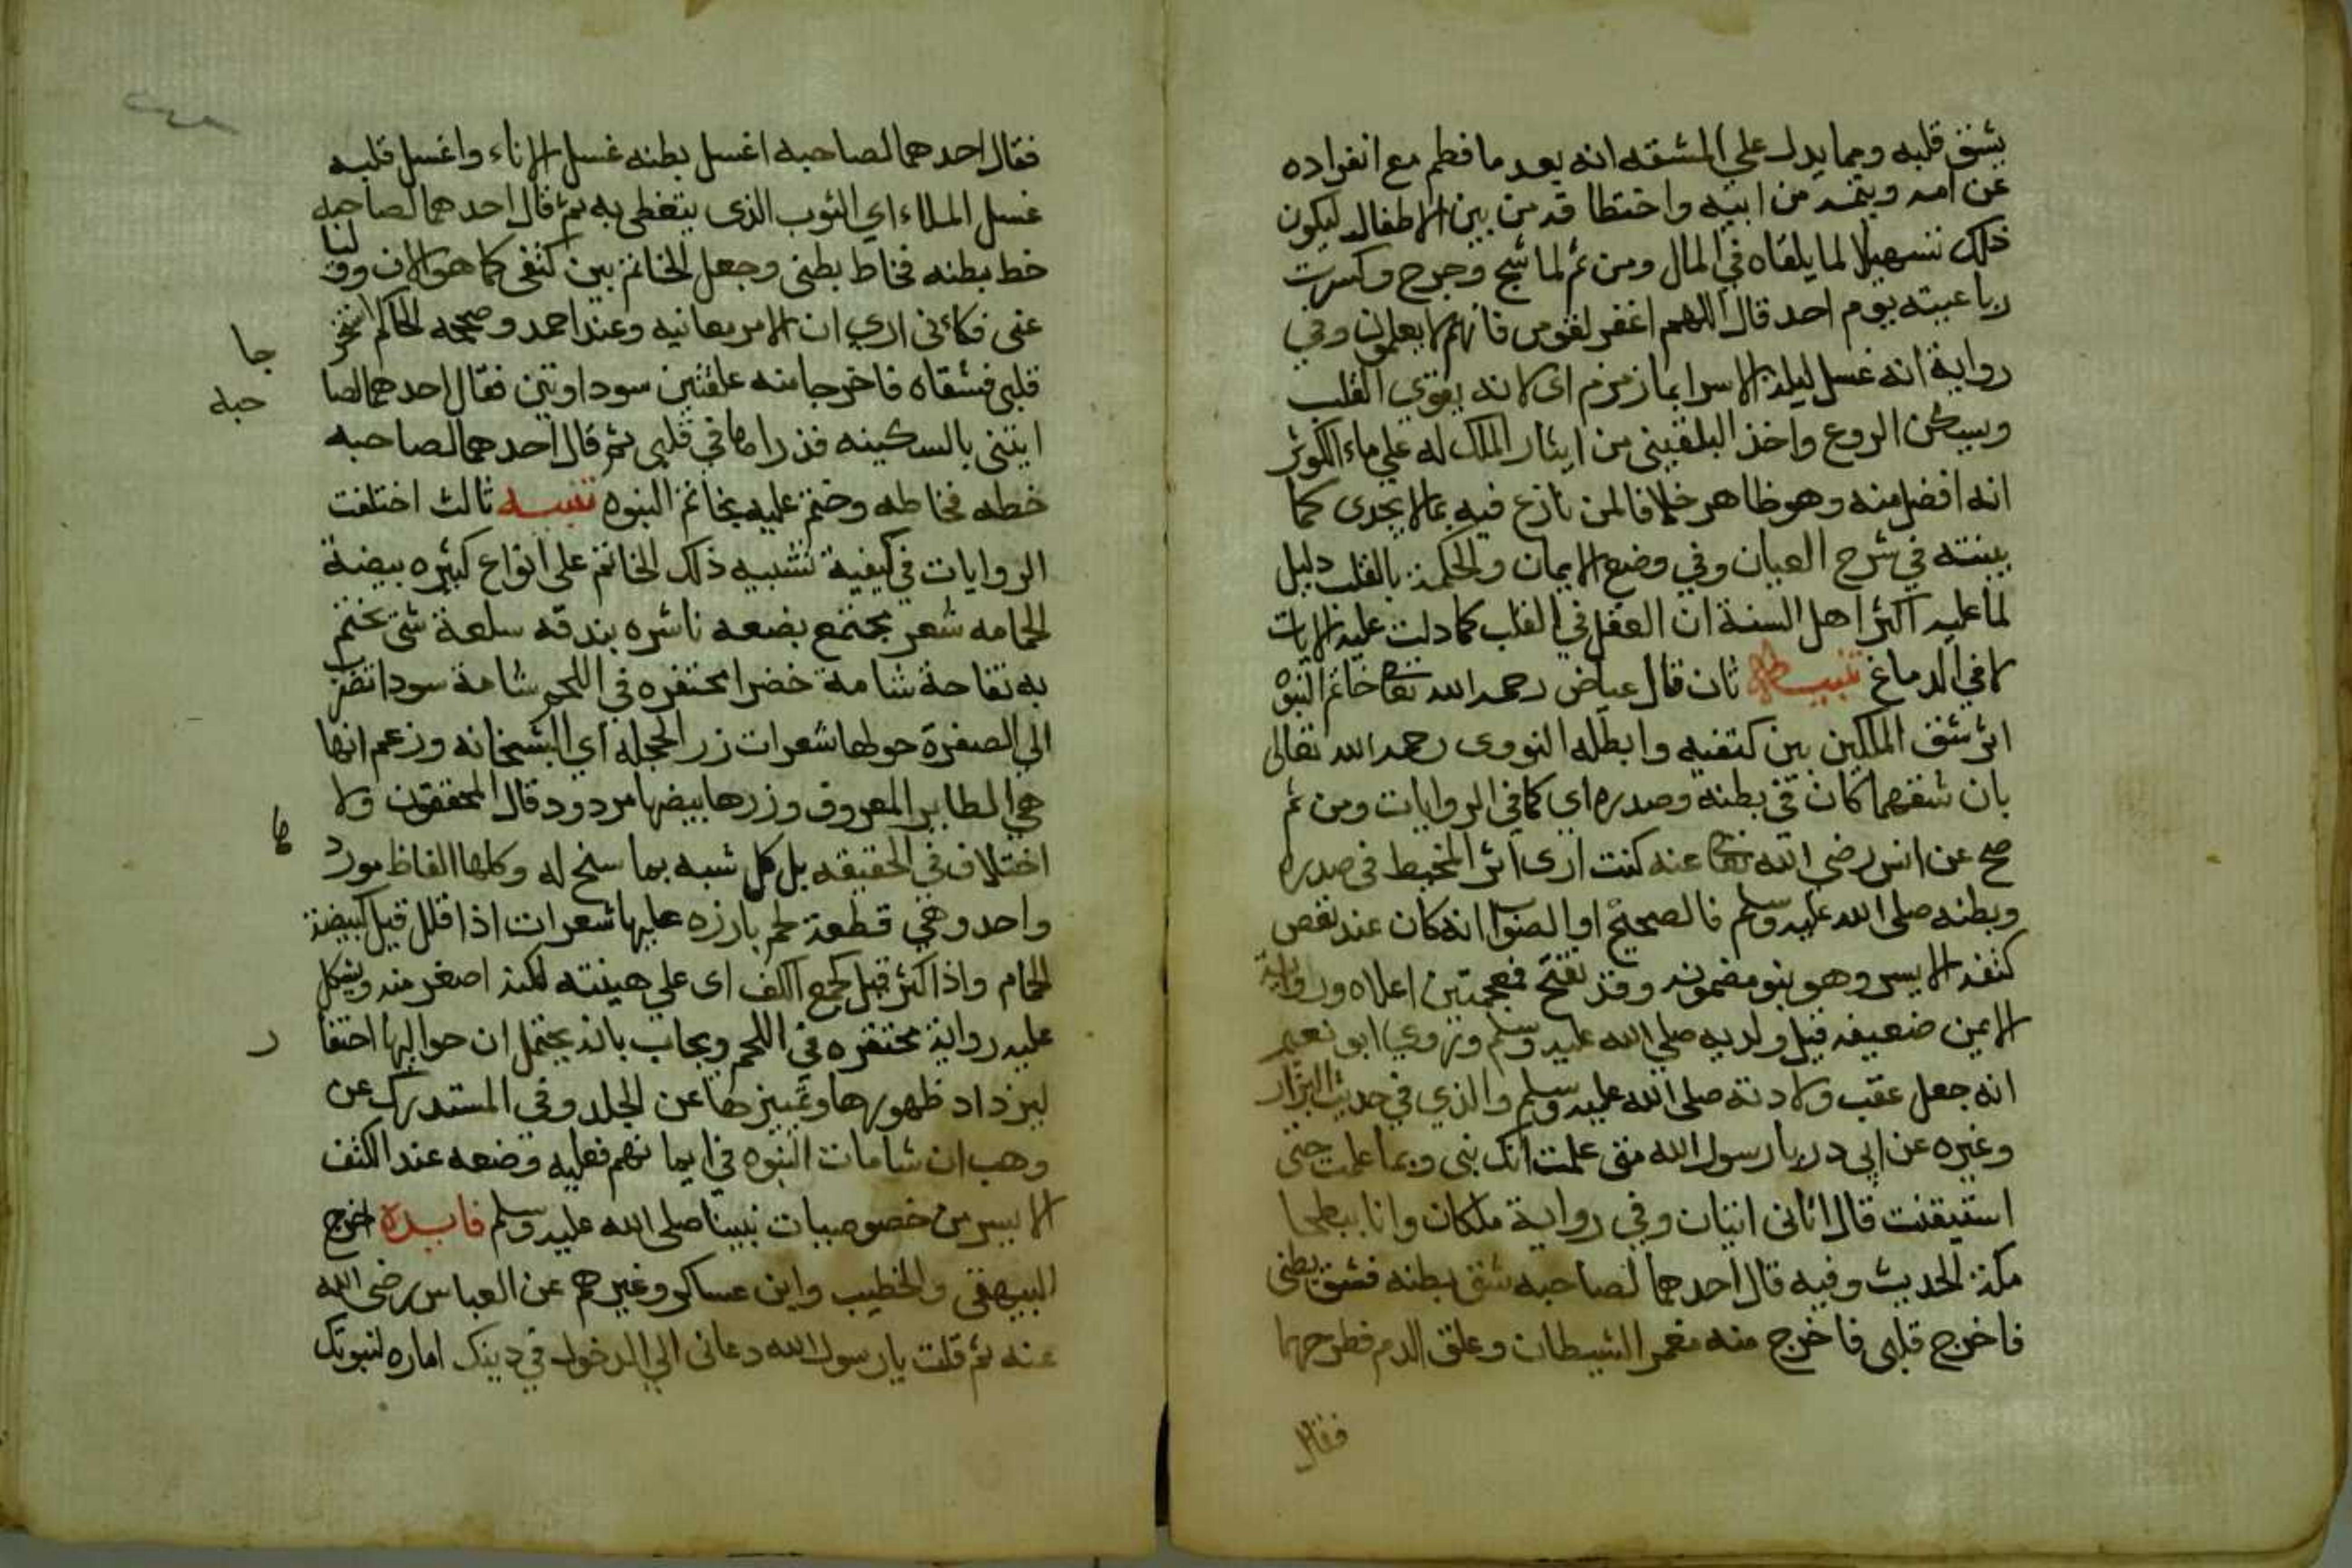 بشق قلبه ومما يدل على المشقه انه بعد ما فطم مع انفراده
عن امه ويتمه من ابيه واختطا قه من بين الاطفال ليكون
ذلك تسهيلا لما يلقاه في المال ومن ثم لما شج وجرح وكسرت
رباعيته يوم احد قال اللهم اغفر لقومي فانهم لا يعلمون وفي
رواية انه غسل ليلة الاسرا بما زمزم اي لانه يقوي القلب
ويسكن الروع واخذ البلقيني من ايثار الملك له على ماء الكوثر
انه افضل منه وهو ظاهر خلافا لمن نازع فيه بما لا يجدى كما
بينته في شرح العباب وفي وضع الايمان والحكمة بالقلب دليل
لما عليه اكثر اهل السنة ان العقل في القلب كما دلت عليه الايات
لا في الدماغ تنبيه ثان قال عياض رحمه الله تعالى خاتم النبوه
اثر شق الملكين بين كتفيه وابطله النووى رحمه الله تعالى
بان شقهما كان في بطنه وصدره اي كما في الروايات ومن ثم
صح عن انس رضي الله تعالى عنه كنت ارى اثر المخيط في صدره
وبطنه صلى الله عليه وسلم فالصحيح او الصواب انه كان عند نغض
كتفه الايسر وهو بنو مضمومه وقد تفتح فمعجمتين اعلاه ورواية
الايمن ضعيفه قيل ولد به صلى الله عليه وسلم وروي ابو نعيم
انه جعل عقب ولادته صلى الله عليه وسلم والذي في حديث البزار
وغيره عن ابي در يا رسول الله متى علمت انك نبى وبما علمت حتى
استيقنت قال اتانى اتيان وفي رواية ملكان وانا ببطحا
مكة الحديث وفيه قال احدهما لصاحبه شق بطنه فشق بطنى
فاخرج قلبى فاخرج منه مغمز الشيطان وعلق الدم فطرحهما
فقال
فقال احدهما لصاحبه اغسل بطنه غسل الاناء واغسل قلبه
غسل الملاء اي الثوب الذى يتغطى به ثم قال احدهما لصاحبه
خط بطنه فخاط بطنى وجعل الخاتم بين كتفى كما هو الان ووليا
عنى فكانى ارى ان الامر معانيه وعند احمد وصححه الحاكم استخرجا
قلبى فشقاه فاخرجا منه علقتين سوداوتين فقال احدهما لصاحبه
ايتنى بالسكينه فذراها في قلبى ثم قال احدهما لصاحبه
خطه فخاطه وختم عليه بخاتم النبوه تنبيه ثالث اختلفت
الروايات في كيفية تشبيه ذلك الخاتم على انواع كثيره بيضة
الحمامه شعر مجتمع بضعه ناشره بندقه سلعة شى يختم
به تفاحة شامة خضرا محتفره في اللحم شامة سودا تضرب
الى الصفرة حولها شعرات زر الحجله اي البشخانه وزعم انها
هي الطاير المعروف وزرها بيضها مردود قال المحققون ولا
اختلاف في الحقيقه بل كل شبه بما سنح له وكلها الفاظ موردها
واحد وهي قطعة لحم بارزه عليها شعرات اذا قلل قيل كبيضة
الحمام واذا كثر قيل كجمع الكف اى على هيئته لكنه اصغر منه ويشكل
عليه رواية محتفره في اللحم ويجاب بانه يحتمل ان حواليها احتفار
ليزداد ظهورها وتمييزها عن الجلد وفي المستدرك عن
وهب ان شامات النبوه في ايمانهم فعليه وضعه عند الكتف
الايسر من خصوصيات نبينا صلى الله عليه وسلم فايدة اخرج
البيهقى والخطيب وابن عساكر وغيرهم عن العباس رضى الله
عنه ثم قلت يا رسول الله دعانى الي الدخول في دينك اماره لنبوتك